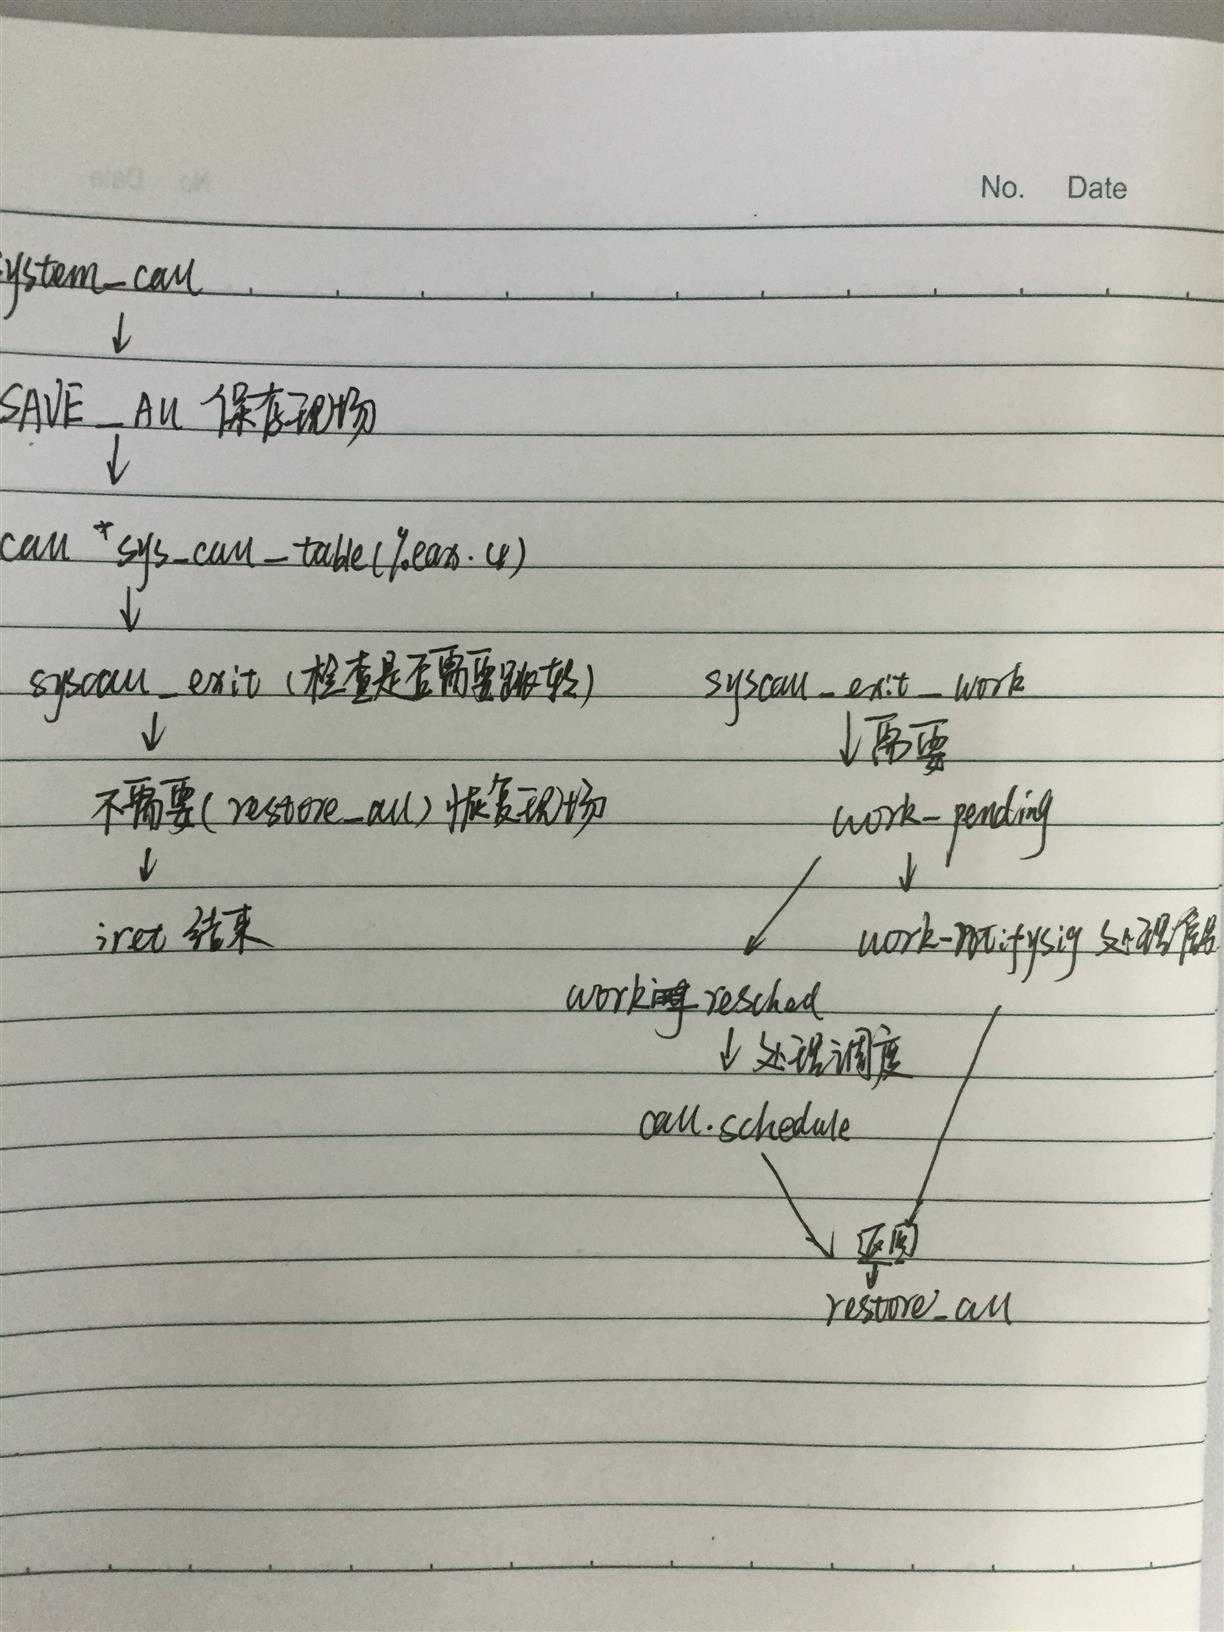 No. Date
ystem_call
SAVE_ALL 保存现场
call *sys_call_table(%eax.4)
syscall_exit (检查是否需要跳转)
syscall_exit_work
需要
不需要(restore_all) 恢复现场
work_pending
iret 结束
work-notifysig 处理信号
work resched
处理调度
call.schedule
restore_all